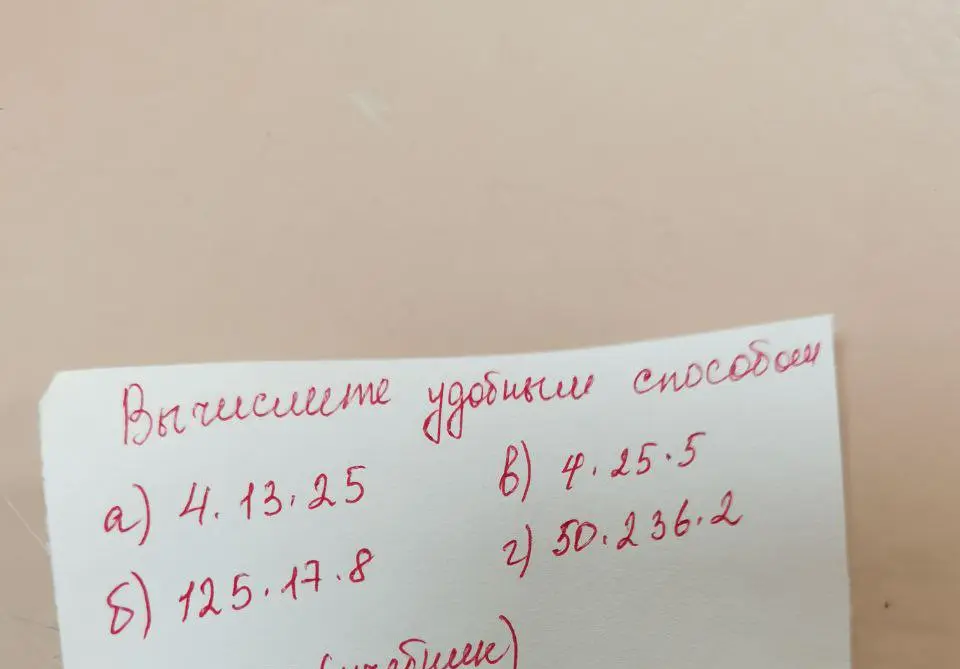 Вычислите удобным способом
а) 4.13.25 в) 4.25.5
б) 125.17.8 г) 50.236.2